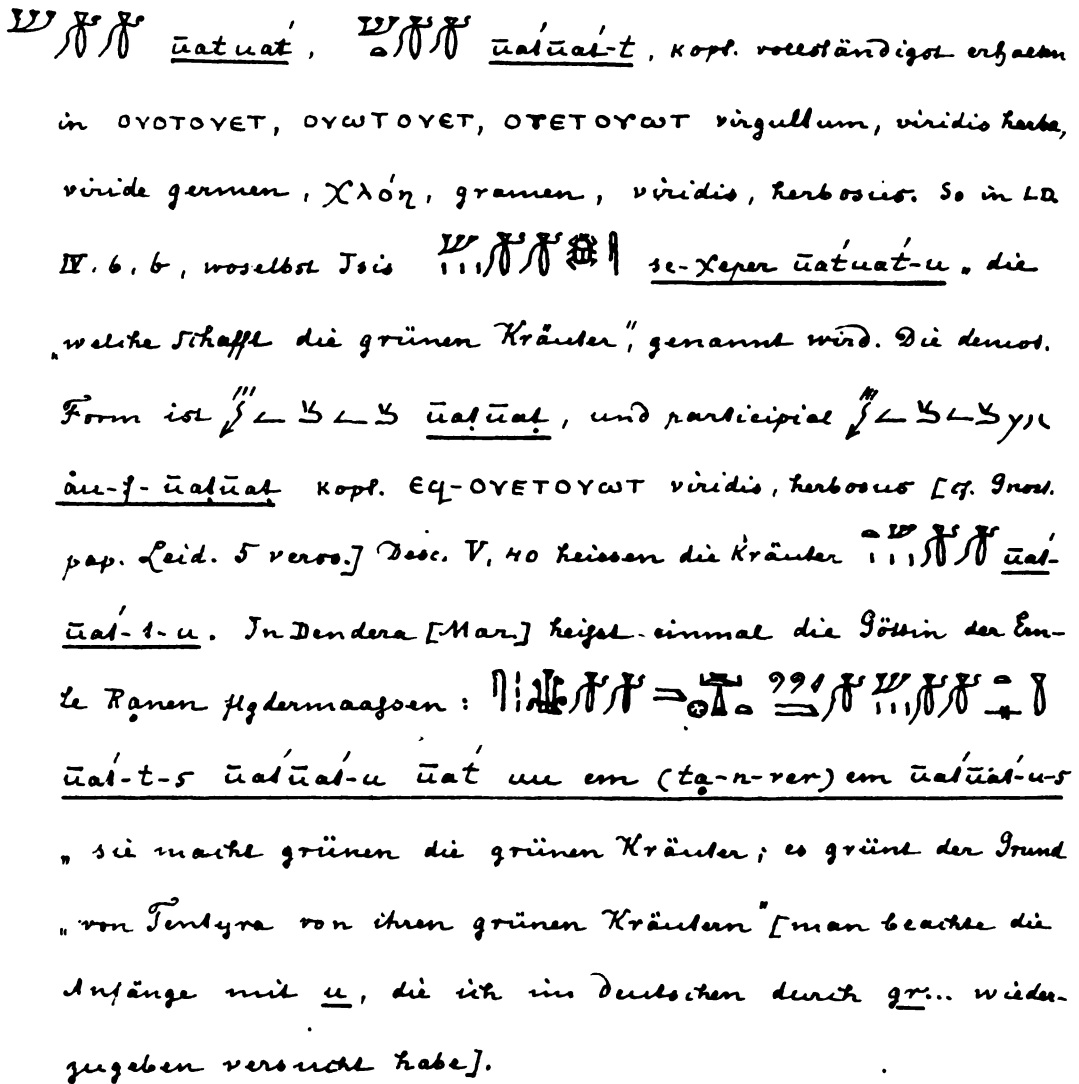 ūat́uat́, ūat́ūat́-t, kopt. vollständigst erhalten
in ⲟⲩⲟⲧⲟⲩⲉⲧ, ⲟⲩⲱⲧⲟⲩⲉⲧ, ⲟⲩⲉⲧⲟⲩⲱⲧ virgultum, viridis herba,
viride germen, χλόη, gramen, viridis, herbosus. So in LD.
IV. 6, b, woselbst Isis se-χeper ūat́uat́-u „die
„welche schafft die grünen Kräuter“, genannt wird. Die demot.
Form ist ūaṭūaṭ, und participial
àu-f-ūaṭūaṭ kopt. ⲉϥ-ⲟⲩⲉⲧⲟⲩⲱⲧ viridis, herbosus [cf. Gnost.
pap. Leid. 5 verso.] Desc. V, 40 heissen die Kräuter ūat́-
ūat́-t-u. In Dendera [Mar.] heißt einmal die Göttin der Ern-
te Rạnen flgdermaaßen:
ūat́-t-s ūat́ūat́-u ūat́ uu em (tạ-n-rer) em ūat́ūat́-u-s
„sie macht grünen die grünen Kräuter; es grünt der Grund
„von Tentyra von ihren grünen Kräutern“ [man beachte die
Anfänge mit u, die ich im Deutschen durch gr... wieder-
zugeben versucht habe].